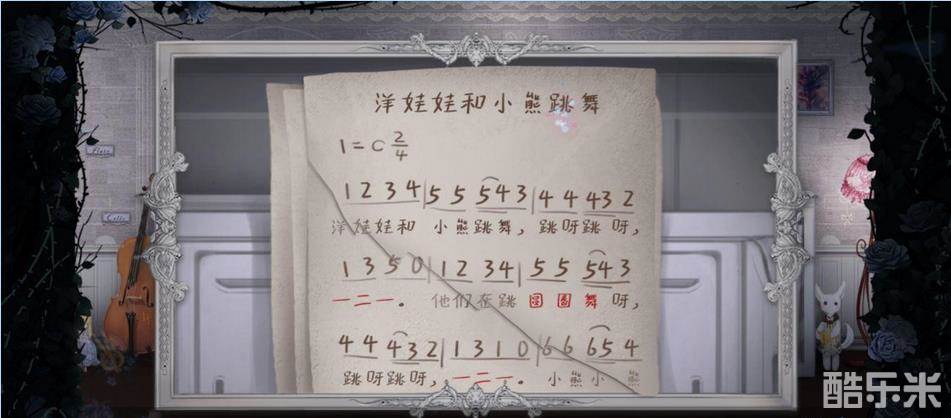 洋娃娃和小熊跳舞
1=C 2/4
1 2 3 4|5 5 543|4 4 43 2
洋娃娃和 小熊跳舞,跳呀跳呀,
1 3 5 0|1 2 3 4|5 5 543
一二一。他们在跳圆圈舞呀,
4 4 43 2|1 3 1 0|6 6 65 4
跳呀跳呀,一二一。小熊小熊
Flute
Cello
酷乐米